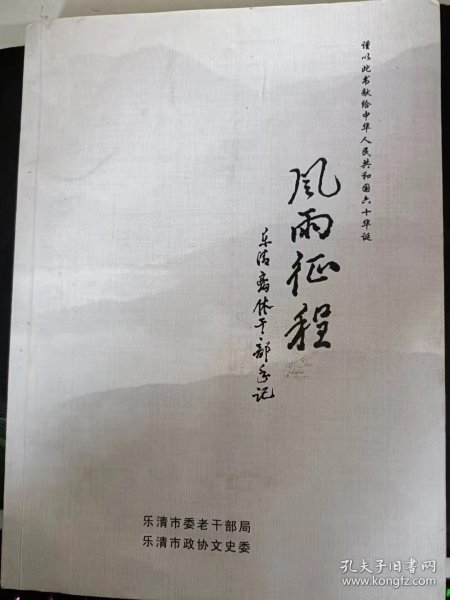 谨以此书献给中华人民共和国六十华诞
风雨征程
乐清离休干部手记
乐清市委老干部局
乐清市政协文史委
孔夫子旧书网
www.kongfz.com